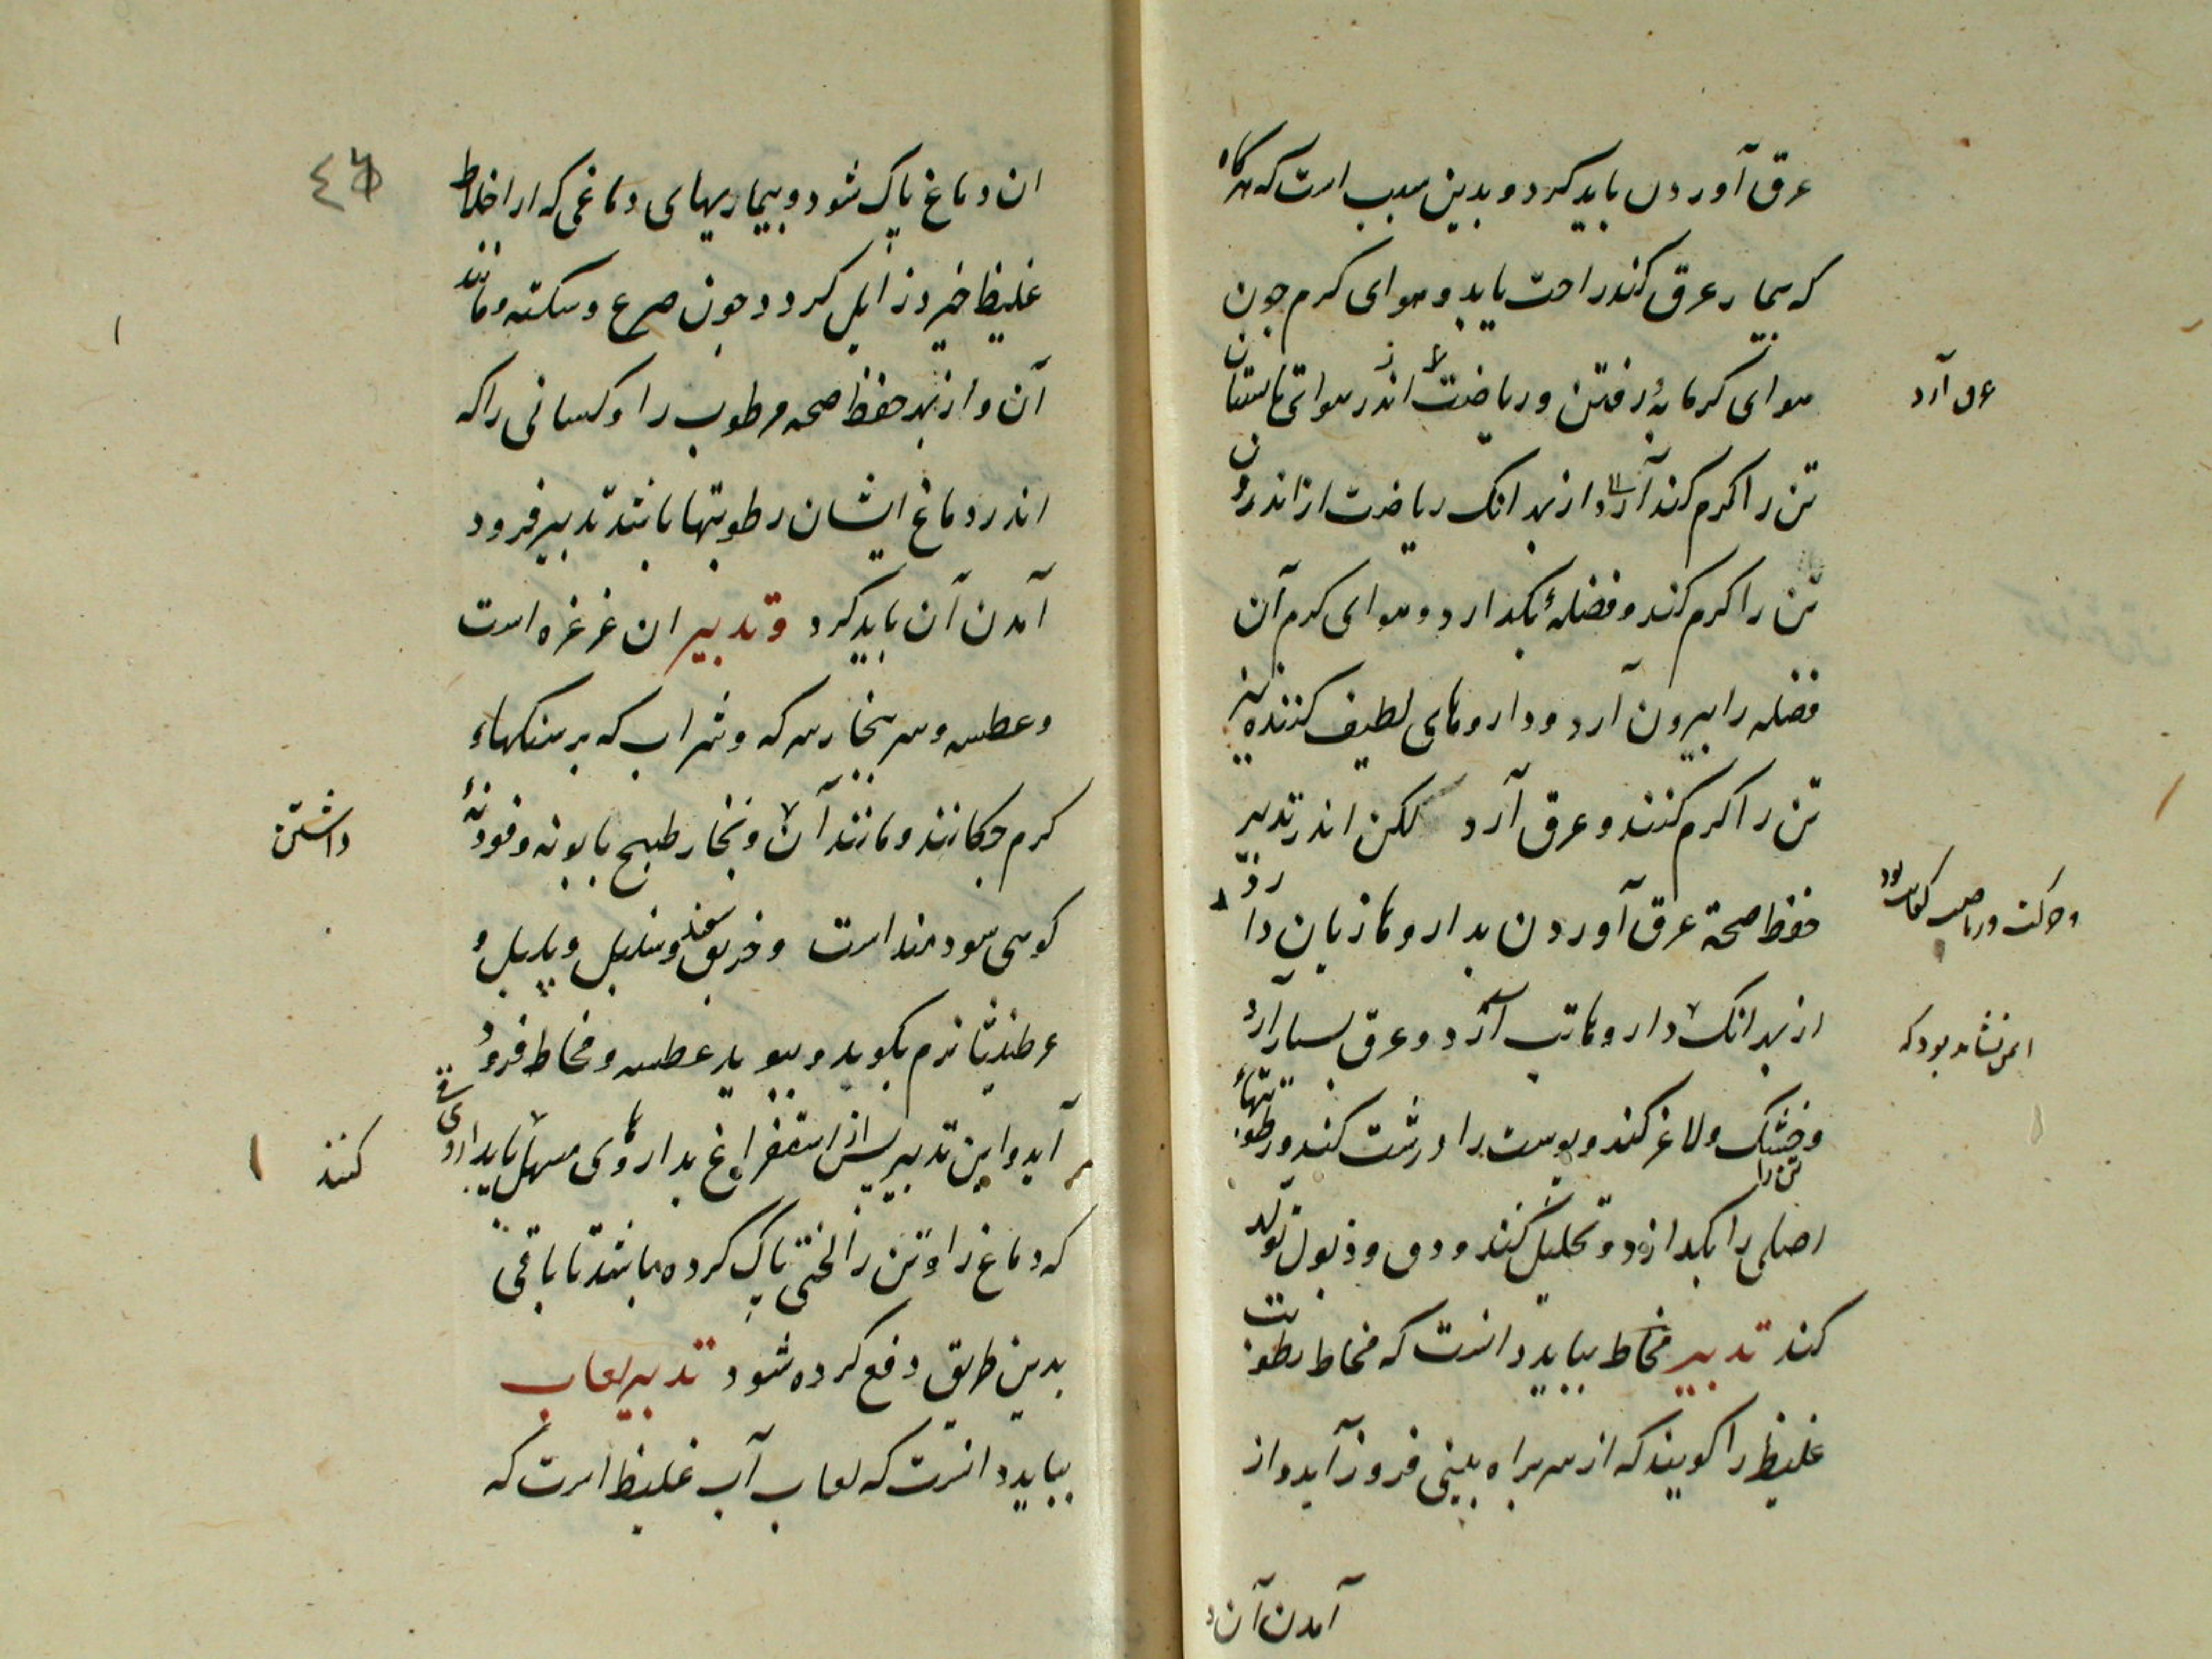 عرق آوردن باید کرد و بدین سبب است که هرگاه
که بیمار عرق کند راحت یابد و هوای کرم جون
هوای کرمابهٔ رفتن و ریاضت اندر هوای تابستان
عرق آرد
تن را کرم کند از بهر انک ریاضت از اندرون
تن را کرم کند و فضلهٔ بکدارد و هوای کرم آن
فضله را بیرون آرد و داروهای لطیف کننده نیز
تن را کرم کنند و عرق آرد لکن اندر تدبیر
حفظ صحة عرق آوردن بداروها زیان دارد
از بهر انک داروها تب آرد و عرق بسیار آرد
ایمن نشاید بود که
و خشک و لاغر کند و پوست را درشت کند و رطوبتهاء
تن را
اصلی را بکدازد و تحلیل کند و دق و ذبول تولد
کند تدبیر مخاط بباید دانست که مخاط رطوبت
غلیظ را کویند که از سر براه بینی فروذ آید و از
آمدن آن
٤٦
ان دماغ پاک شود و بیماریهای دماغی که از اخلاط
غلیظ خیزد زایل کردد جون صرع و سکته و مانند
آن و از بهر حفظ صحه مرطوب را و کسانی را که
اندر دماغ ایشان رطوبتها باشد تدبیر فرود
آمدن آن باید کرد و تدبیر ان غرغره است
و عطسه و سر ببخار سرکه و شراب که بر سنکهاء
کرم جکانند و مانند آن و بخار طبیخ بابونه و فودنهٔ
داشتن
کوهی سودمند است و خربق سفید و سنبل و پلپل و
عرطنیثا نرم بکوبد و ببوید عطسه و مخاط فرود
آید و این تدبیر پس از استفراغ بداروهای مسهل باید
کنند
که دماغ را و تن را لختی پاک کرده باشد تا باقی
بدین طریق دفع کرده شود تدبیر لعاب
بباید دانست که لعاب آب غلیظ است که